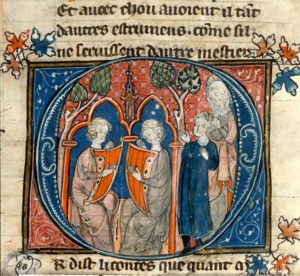 Et avec chou avoient il tāt
dautres estrumens. cōme sil
ne servissent dautre mestier
OR dist li contes que quant a